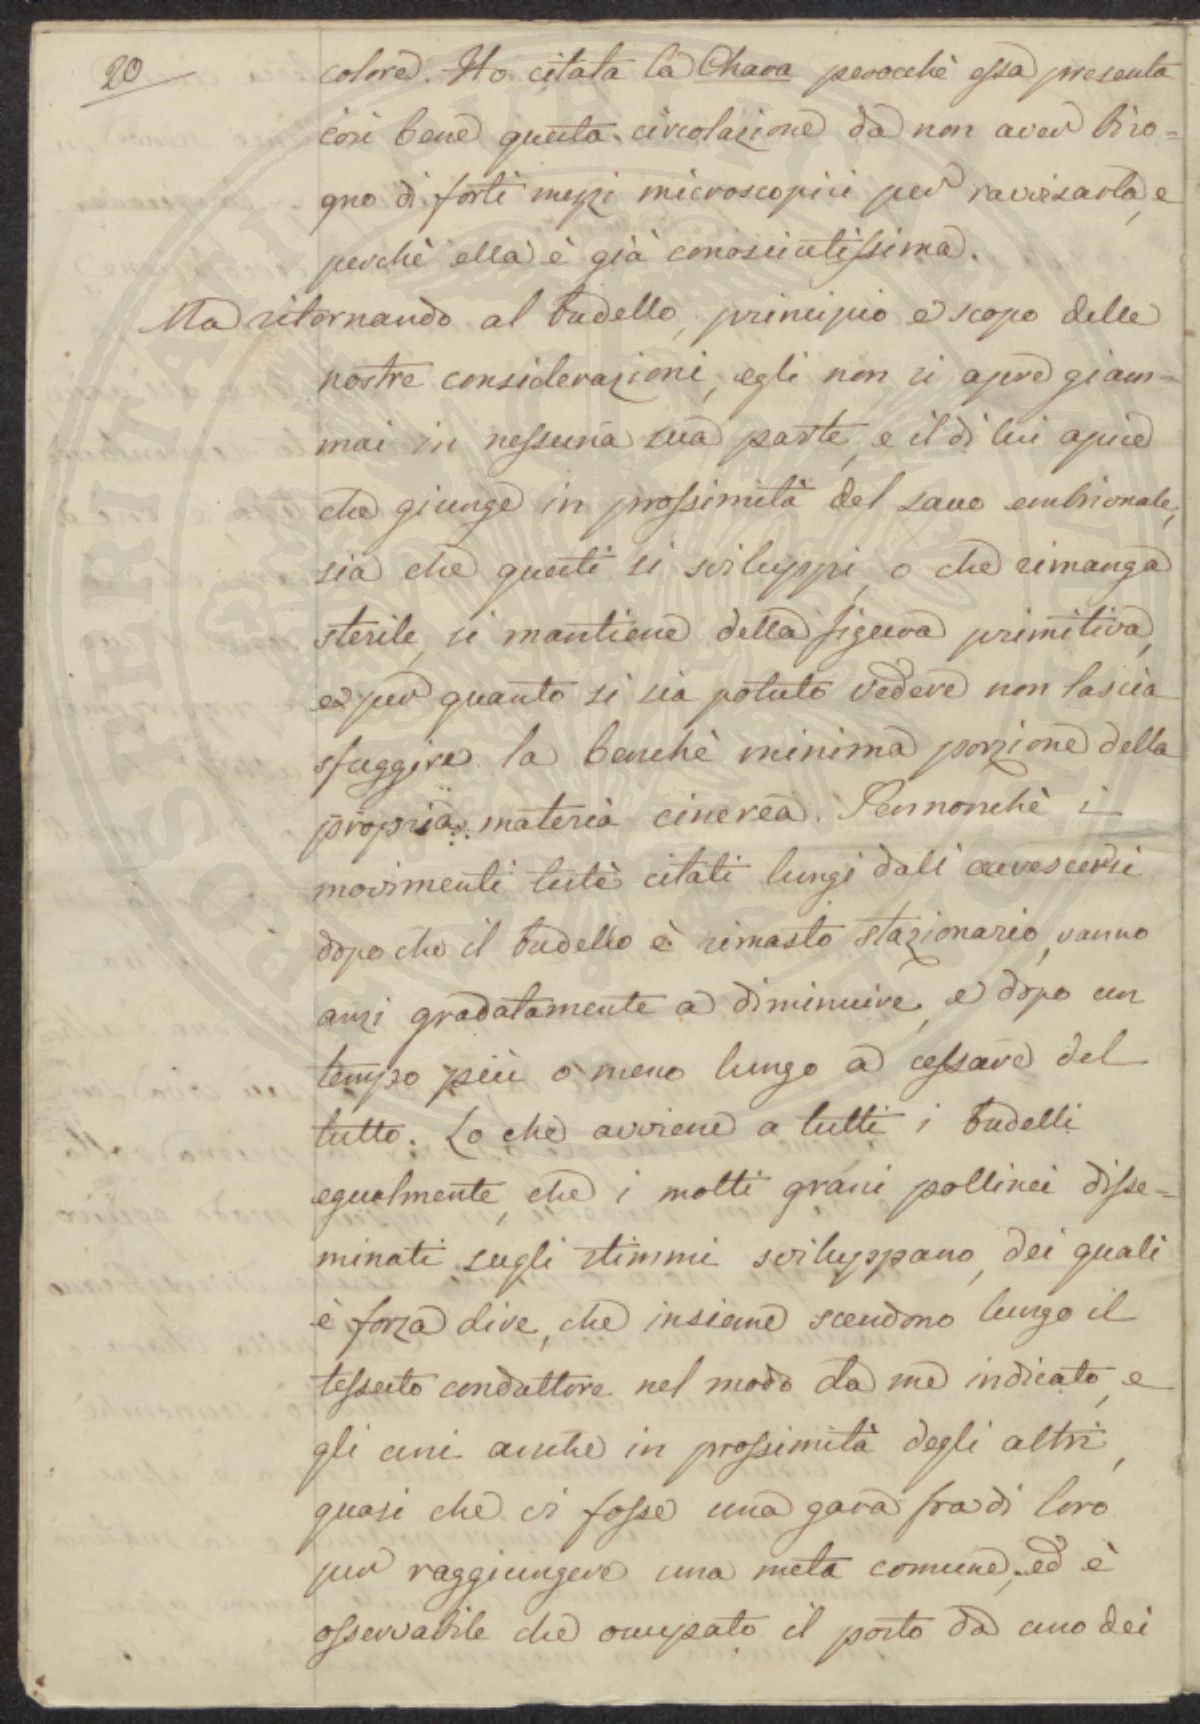 20
colore. Ho citata la Chara perocchè essa presenta
così bene questa circolazione da non aver biso=
gno di forti mezzi microscopici per ravvisarla, e
perchè ella è già conosciutissima.
Ma ritornando al budello, principio e scopo delle
nostre considerazioni, egli non si apre giam=
mai in nessuna sua parte, e il di lui apice
che giunge in prossimità del sacco embrionale,
sia che questi si sviluppi, o che rimanga
sterile, si mantiene della figura primitiva,
e per quanto si sia potuto vedere non lascia
sfuggire la benchè minima porzione della
propria materia cinerea. Sennonchè i
movimenti testè citati lungi dall'accrescersi
dopo che il budello è rimasto stazionario, vanno
anzi gradatamente a diminuire, e dopo un
tempo più o meno lungo a cessare del
tutto. Lo che avviene a tutti i budelli
egualmente, che i molti grani pollinei disse=
minati sugli stimmi sviluppano, dei quali
è forza dire, che insieme scendono lungo il
tessuto conduttore nel modo da me indicato, e
gli uni anche in prossimità degli altri,
quasi che ci fosse una gara fra di loro
per raggiungere una meta comune, ed è
osservabile che occupato il posto da uno dei
POSTERITATI
VERITATI